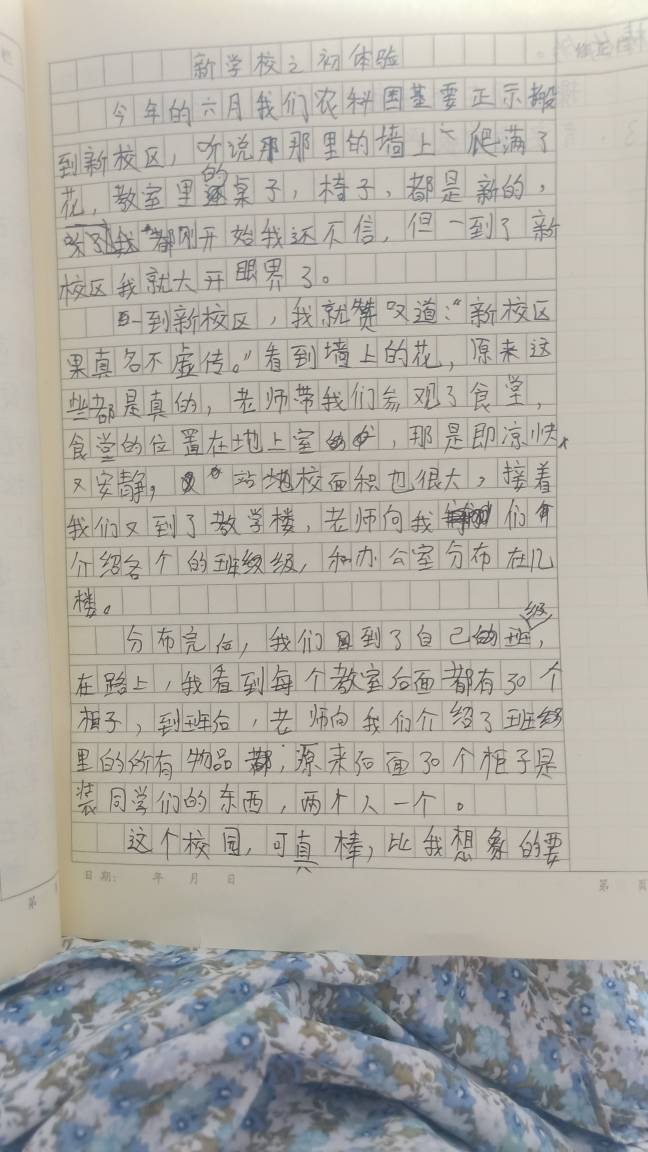 新学校之初体验
今年的六月我们农科围基要正示搬
到新校区，听说那里的墙上爬满了
花，教室里的桌子，椅子，都是新的，
刚开始我还不信，但一到了新
校区我就大开眼界了。
一到新校区，我就赞叹道：“新校区
果真名不虚传。”看到墙上的花，原来这
些都是真的，老师带我们参观了食堂，
食堂的位置在地上室，那是即凉快
又安静，占地校面积也很大，接着
我们又到了教学楼，老师向我们
介绍各个的班级，和办公室分布在几
楼。
分布完后，我们到了自己的班级，
在路上，我看到每个教室后面都有30个
柜子，到班后，老师向我们介绍了班级
里的所有物品，原来后面30个柜子是
装同学们的东西，两个人一个。
这个校园，可真棒，比我想象的要
日期： 年 月 日
第 页
第